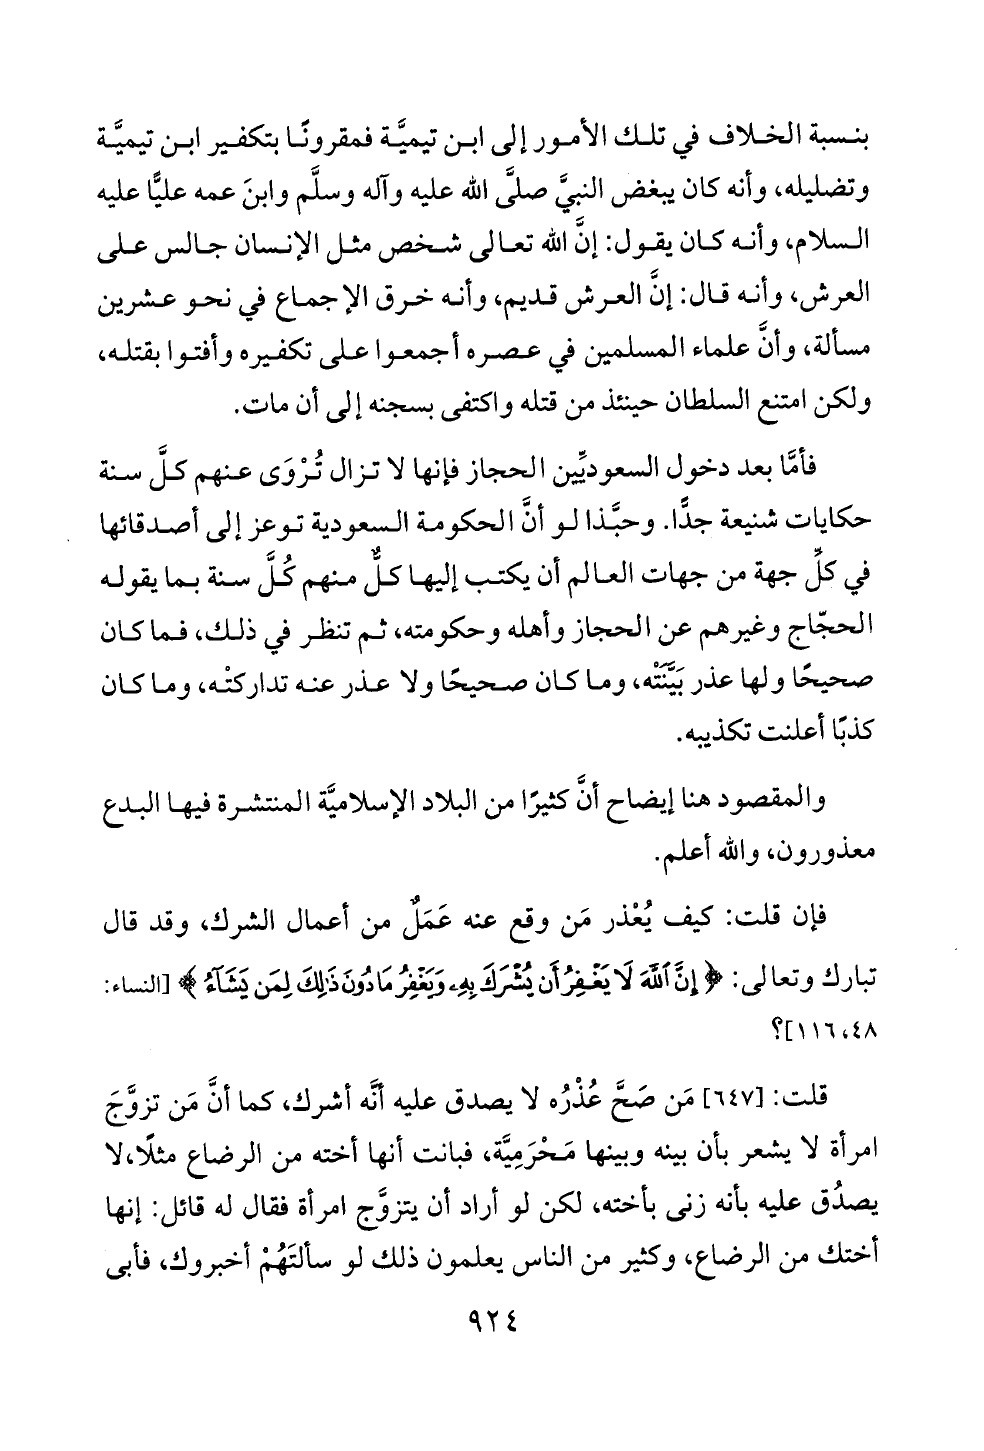 بنسبة الخلاف في تلك الأمور إلى ابن تيميَّة فمقرونًا بتكفير ابن تيميَّة
وتضليله، وأنه كان يبغض النبيَّ صلَّى الله عليه وآله وسلَّم وابنَ عمه عليًّا عليه
السلام، وأنه كان يقول: إنَّ الله تعالى شخص مثل الإنسان جالس على
العرش، وأنه قال: إنَّ العرش قديم، وأنه خرق الإجماع في نحو عشرين
مسألة، وأنَّ علماء المسلمين في عصره أجمعوا على تكفيره وأفتوا بقتله،
ولكن امتنع السلطان حينئذ من قتله واكتفى بسجنه إلى أن مات.
فأمَّا بعد دخول السعوديِّين الحجاز فإنها لا تزال تُرْوَى عنهم كلَّ سنة
حكايات شنيعة جدًّا. وحبَّذا لو أنَّ الحكومة السعودية توعز إلى أصدقائها
في كلِّ جهة من جهات العالم أن يكتب إليها كلٌّ منهم كُلَّ سنة بما يقوله
الحجّاج وغيرهم عن الحجاز وأهله وحكومته، ثم تنظر في ذلك، فما كان
صحيحًا ولها عذر بَيَّنَتْه، وما كان صحيحًا ولا عذر عنه تداركتْه، وما كان
كذبًا أعلنت تكذيبه.
والمقصود هنا إيضاح أنَّ كثيرًا من البلاد الإسلاميَّة المنتشرة فيها البدع
معذورون، والله أعلم.
فإن قلت: كيف يُعْذر مَن وقع عنه عَمَلٌ من أعمال الشرك، وقد قال
تبارك وتعالى: ﴿إِنَّ ٱللَّهَ لَا يَغْفِرُ أَن يُشْرَكَ بِهِۦ وَيَغْفِرُ مَا دُونَ ذَٰلِكَ لِمَن يَشَآءُ﴾ [النساء:
٤٨، ١١٦]؟
قلت: [٦٤٧] مَن صَحَّ عُذْرُه لا يصدق عليه أنَّه أشرك، كما أنَّ مَن تزوَّجَ
امرأة لا يشعر بأن بينه وبينها مَحْرَمِيَّة، فبانت أنها أخته من الرضاع مثلًا،لا
يصدُق عليه بأنه زنى بأخته، لكن لو أراد أن يتزوَّج امرأة فقال له قائل: إنها
أختك من الرضاع، وكثير من الناس يعلمون ذلك لو سألتَهُمْ أخبروك، فأبى
٩٢٤